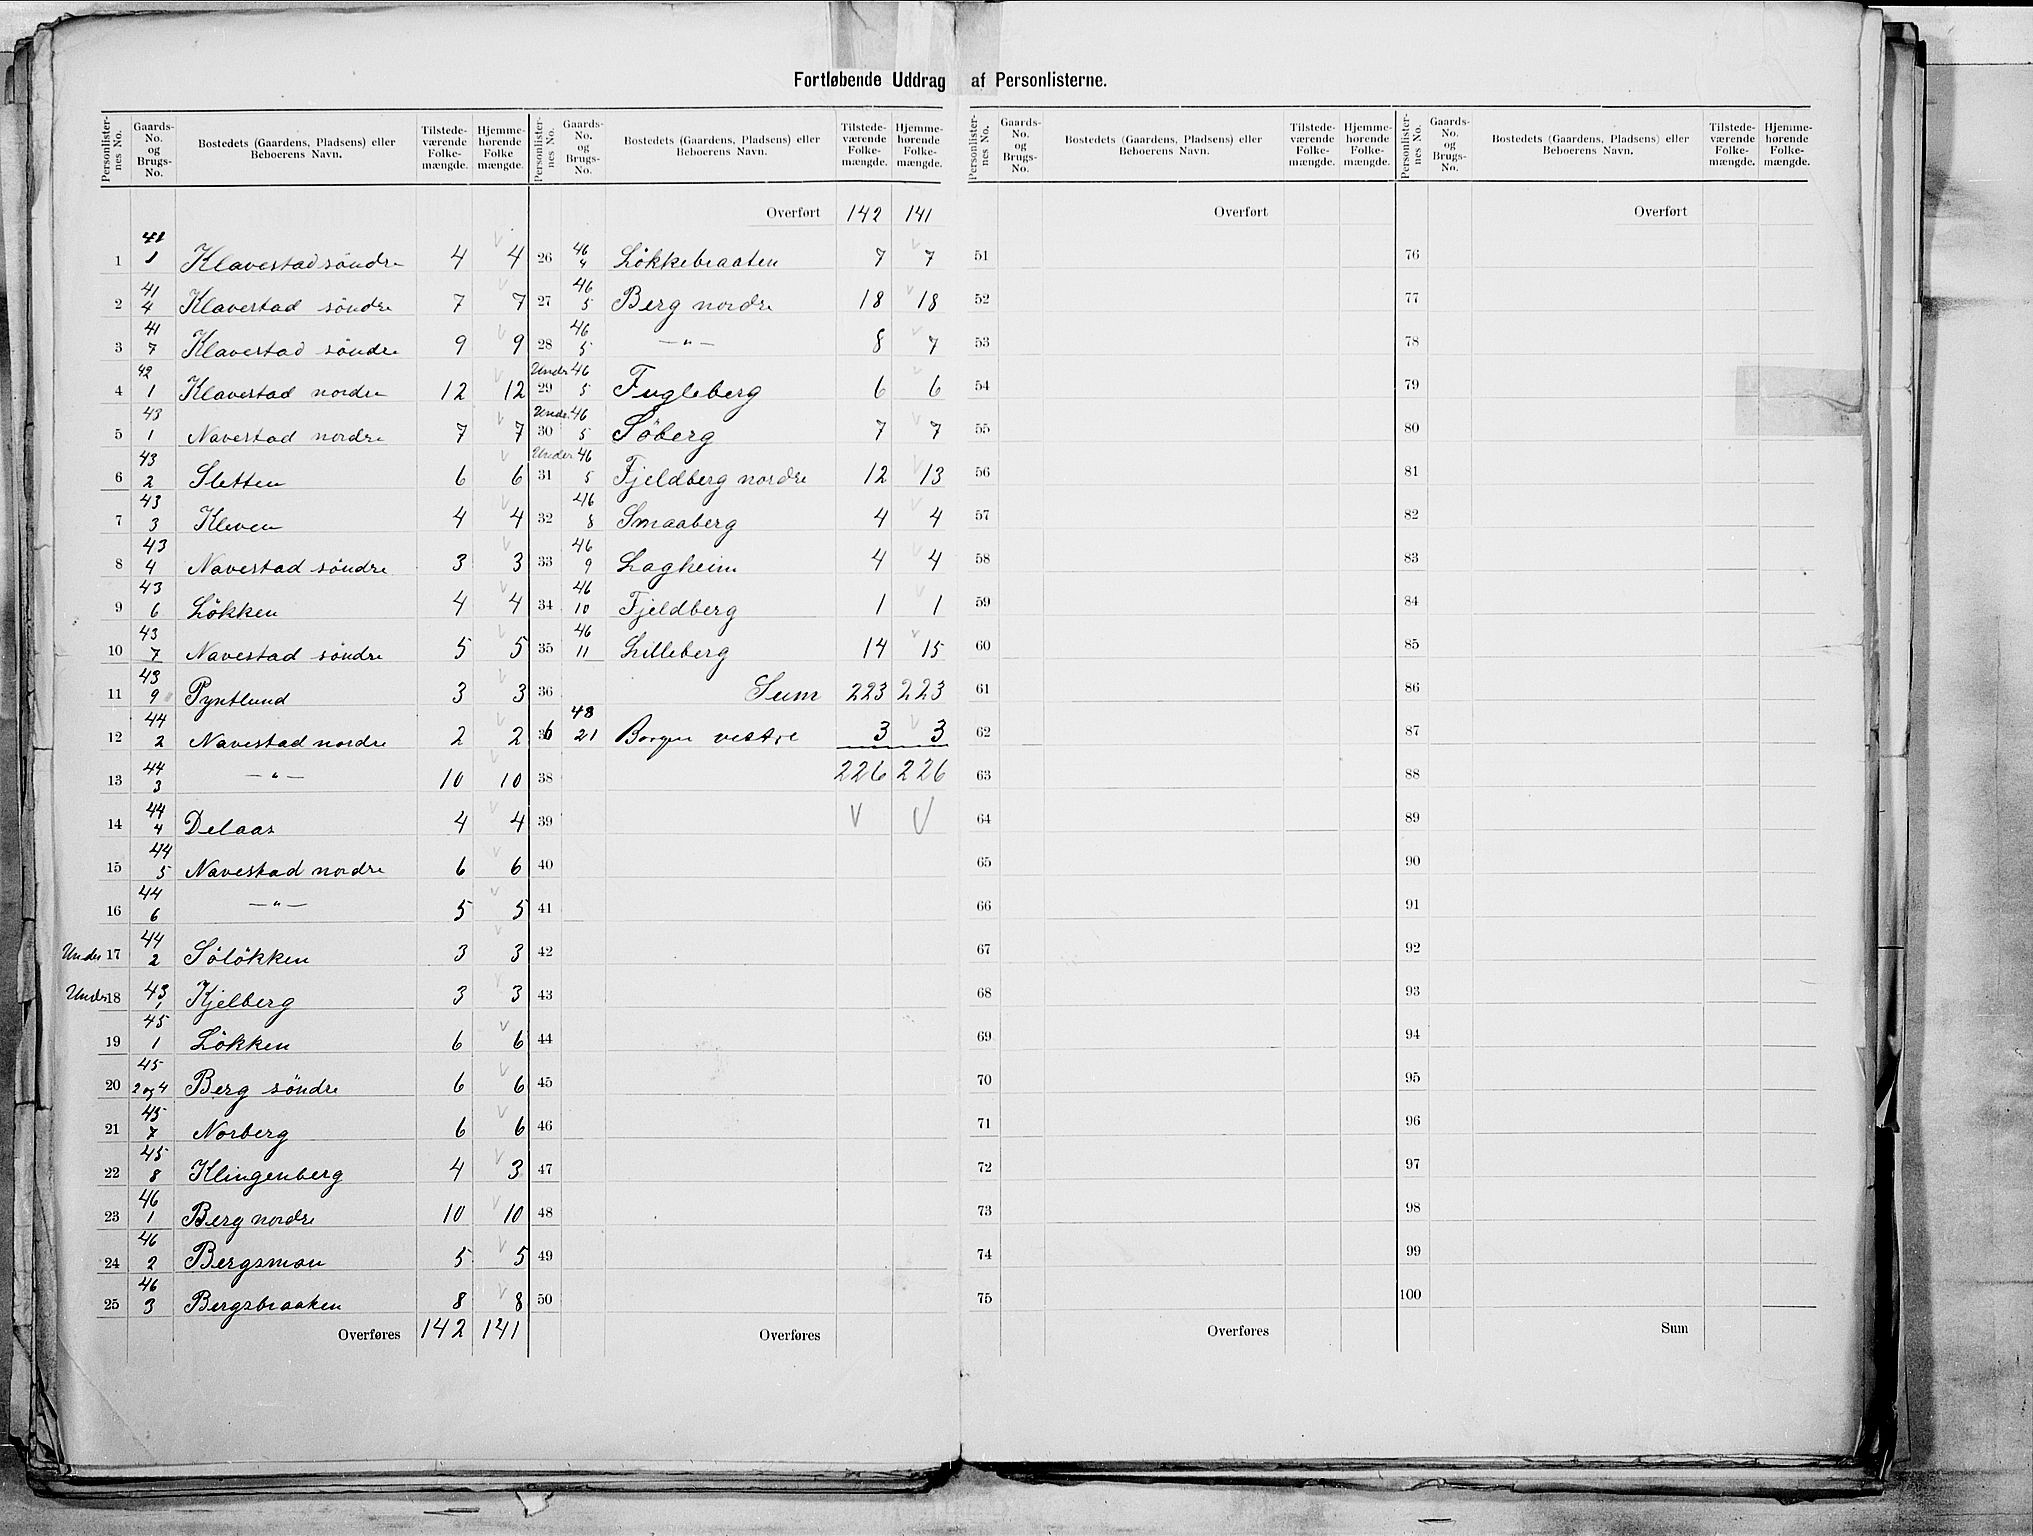 Fortløbende Uddrag af Personlisterne.
Personlister-nes No. Gaards-No. og Brugs-No. Bostedets (Gaardens, Pladsens) eller Beboerens Navn. Tilstede-værende Folke-mængde. Hjemme-hørende Folke mængde.
1 41 1 Klavestad söndre 4 4
2 41 4 Klavestad söndre 7 7
3 41 7 Klavestad söndre 9 9
4 42 1 Klavestad nordre 12 12
5 43 1 Navestad nordre 7 7
6 43 2 Sletten 6 6
7 43 3 Kleven 4 4
8 43 4 Navestad söndre 3 3
9 43 6 Lökken 4 4
10 43 7 Navestad söndre 5 5
11 43 9 Pyntlund 3 3
12 44 2 Navestad nordre 2 2
13 44 3 —"— 10 10
14 44 4 Delaas 4 4
15 44 5 Navestad nordre 6 6
16 44 6 —"— 5 5
Under 17 44 2 Sölökken 3 3
Under 18 43 1 Kjelberg 3 3
19 45 1 Lökken 6 6
20 45 2 og 4 Berg söndre 6 6
21 45 7 Norberg 6 6
22 45 8 Klingenberg 4 3
23 46 1 Berg nordre 10 10
24 46 2 Bergsmon 5 5
25 46 3 Bergsbraaten 8 8
Overføres 142 141
Personlister-nes No. Gaards-No. og Brugs-No. Bostedets (Gaardens, Pladsens) eller Beboerens Navn. Tilstede-værende Folke-mængde. Hjemme-hørende Folke-mængde.
Overført 142 141
26 46 4 Lökkebraaten 7 7
27 46 5 Berg nordre 18 18
28 46 5 —"— 8 7
Under 29 46 5 Fugleberg 6 6
Under 30 46 5 Söberg 7 7
Under 31 46 5 Fjeldberg nordre 12 13
32 46 8 Smaaberg 4 4
33 46 9 Lagheim 4 4
34 46 10 Fjeldberg 1 1
35 46 11 Lilleberg 14 15
36 Sum 223 223
36 48 21 Borgen vestre 3 3
38 226 226
39
40
41
42
43
44
45
46
47
48
49
50
Overføres
Personlister-nes No. Gaards-No. og Brugs-No. Bostedets (Gaardens, Pladsens) eller Beboerens Navn. Tilstede-værende Folke-mængde. Hjemme-hørende Folke-mængde.
Overført
51
52
53
54
55
56
57
58
59
60
61
62
63
64
65
66
67
68
69
70
71
72
73
74
75
Overføres
Personlister-nes No. Gaards-No. og Brugs-No. Bostedets (Gaardens, Pladsens) eller Beboerens Navn. Tilstede-værende Folke-mængde. Hjemme-hørende Folke-mængde.
Overført
76
77
78
79
80
81
82
83
84
85
86
87
88
89
90
91
92
93
94
95
96
97
98
99
100
Sum